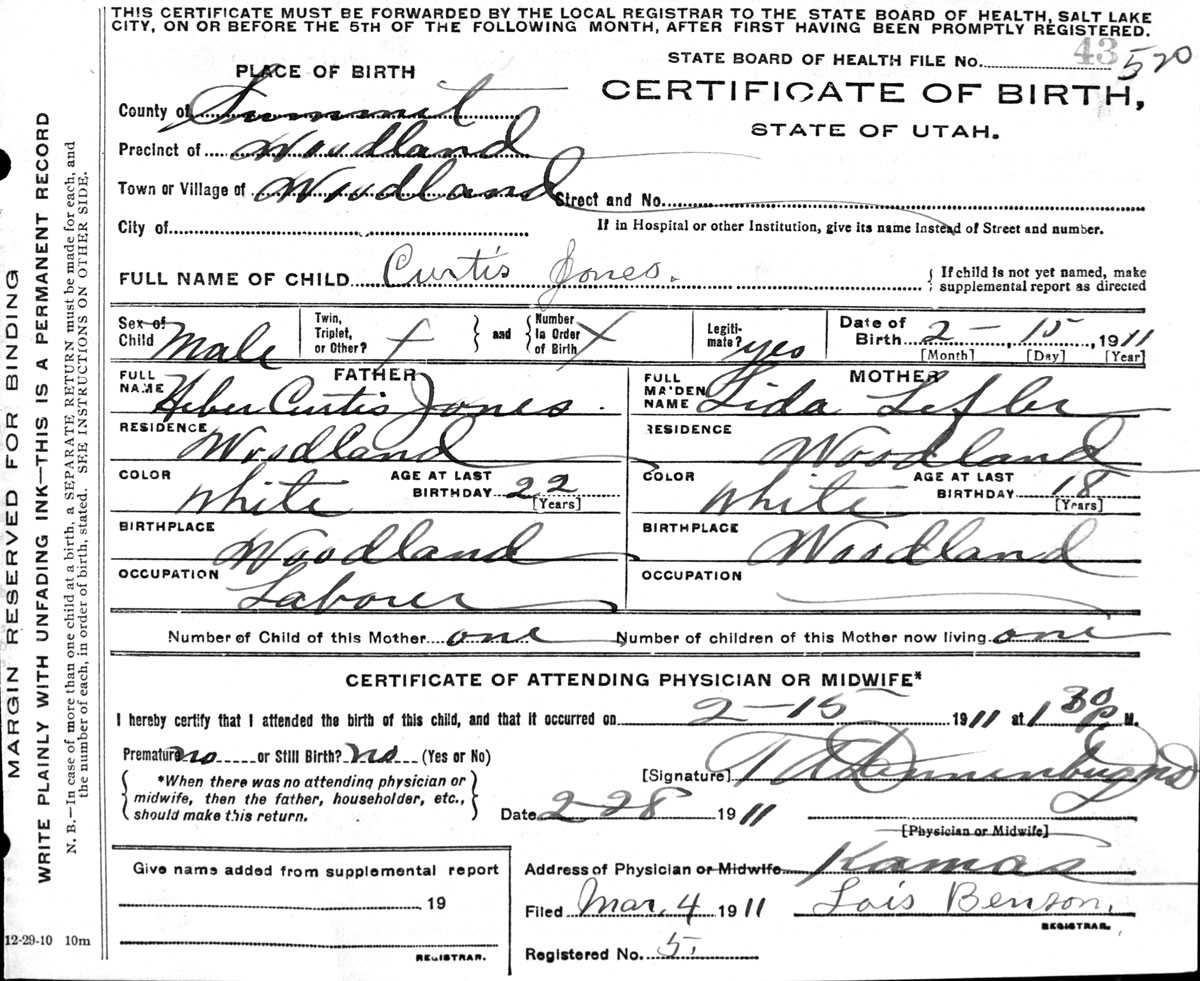 THIS CERTIFICATE MUST BE FORWARDED BY THE LOCAL REGISTRAR TO THE STATE BOARD OF HEALTH, SALT LAKE
CITY, ON OR BEFORE THE 5TH OF THE FOLLOWING MONTH, AFTER FIRST HAVING BEEN PROMPTLY REGISTERED.
STATE BOARD OF HEALTH FILE NO. 43 520
PLACE OF BIRTH
CERTIFICATE OF BIRTH,
STATE OF UTAH.
County of Summit
Precinct of Woodland
Town or Village of Woodland Street and No.
City of
If in Hospital or other Institution, give its name instead of Street and number.
FULL NAME OF CHILD Curtis Jones.
If child is not yet named, make
supplemental report as directed
Sex of Child Male
Twin, Triplet, or Other? and Number in Order of Birth
Legitimate? yes
Date of Birth 2 - 15, 1911
[Month] [Day] [Year]
FATHER
FULL NAME Heber Curtis Jones.
RESIDENCE Woodland
COLOR White AGE AT LAST BIRTHDAY 22 [Years]
BIRTHPLACE Woodland
OCCUPATION Laborer
MOTHER
FULL MAIDEN NAME Lida Lefler
RESIDENCE Woodland
COLOR White AGE AT LAST BIRTHDAY 18 [Years]
BIRTHPLACE Woodland
OCCUPATION
Number of Child of this Mother one Number of children of this Mother now living one
CERTIFICATE OF ATTENDING PHYSICIAN OR MIDWIFE*
I hereby certify that I attended the birth of this child, and that it occurred on 2-15 1911 at 1 30 P M.
Premature no or Still Birth? no (Yes or No)
*When there was no attending physician or
midwife, then the father, householder, etc.,
should make this return.
[Signature]
Date 2-28 1911
[Physician or Midwife]
Address of Physician or Midwife Kamas
Filed Mar, 4 1911 Lois Benson,
REGISTRAR.
Registered No. 5.
Give name added from supplemental report
19
REGISTRAR.
12-29-10 10m
MARGIN RESERVED FOR BINDING
WRITE PLAINLY WITH UNFADING INK—THIS IS A PERMANENT RECORD
N. B.—In case of more than one child at a birth, a SEPARATE RETURN must be made for each, and
the number of each, in order of birth, stated. SEE INSTRUCTIONS ON OTHER SIDE.